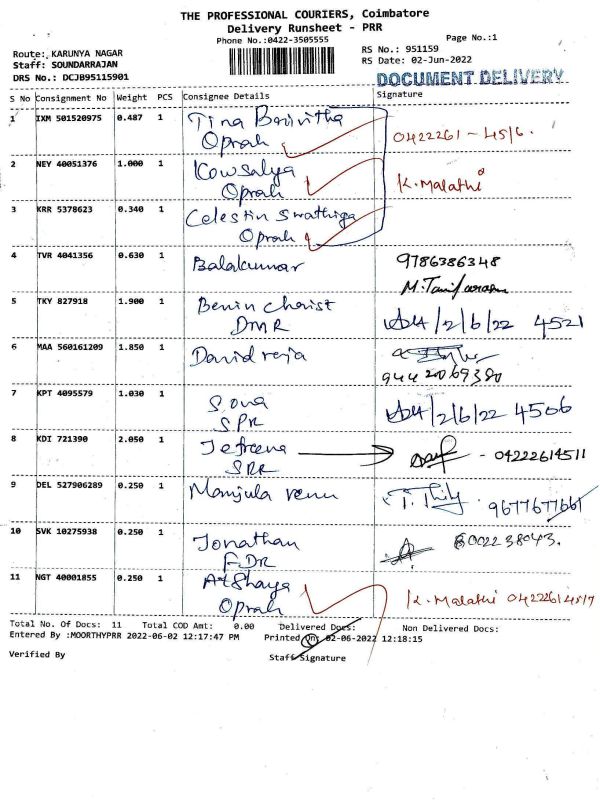 THE PROFESSIONAL COURIERS, Coimbatore
Delivery Runsheet - PRR
Phone No.:0422-3505555
Page No.:1
Route: KARUNYA NAGAR
RS No.: 951159
Staff: SOUNDARRAJAN
RS Date: 02-Jun-2022
DRS No.: DCJB95115901
DOCUMENT DELIVERY
S No Consignment No Weight PCS Consignee Details Signature
1 IXM 501520975 0.487 1 Tina
Oprah 0422261-4516.
2 NEY 40051376 1.000 1 Kowsalya
Oprah K. Malathi
3 KRR 5378623 0.340 1 Celestin Swathiga
Oprah
4 TVR 4041356 0.630 1 Balakumar 9786386348
5 TKY 827918 1.900 1 Benin Christ
DMR 2/6/22 4521
6 MAA 560161209 1.850 1 David reja
9442069380
7 KPT 4095579 1.030 1 Sona
SPR 2/6/22 4506
8 KDI 721390 2.050 1 Jefreena
SRR - 04222614511
9 DEL 527906289 0.250 1 Manjula renu
9677677661
10 SVK 10275938 0.250 1 Jonathan 8002238043.
FDR
11 NGT 40001855 0.250 1 Atshaya
Oprah K. Malathi 04222614517
Total No. Of Docs: 11 Total COD Amt: 0.00 Delivered Docs: Non Delivered Docs:
Entered By :MOORTHYPRR 2022-06-02 12:17:47 PM Printed On: 02-06-2022 12:18:15
Verified By Staff Signature